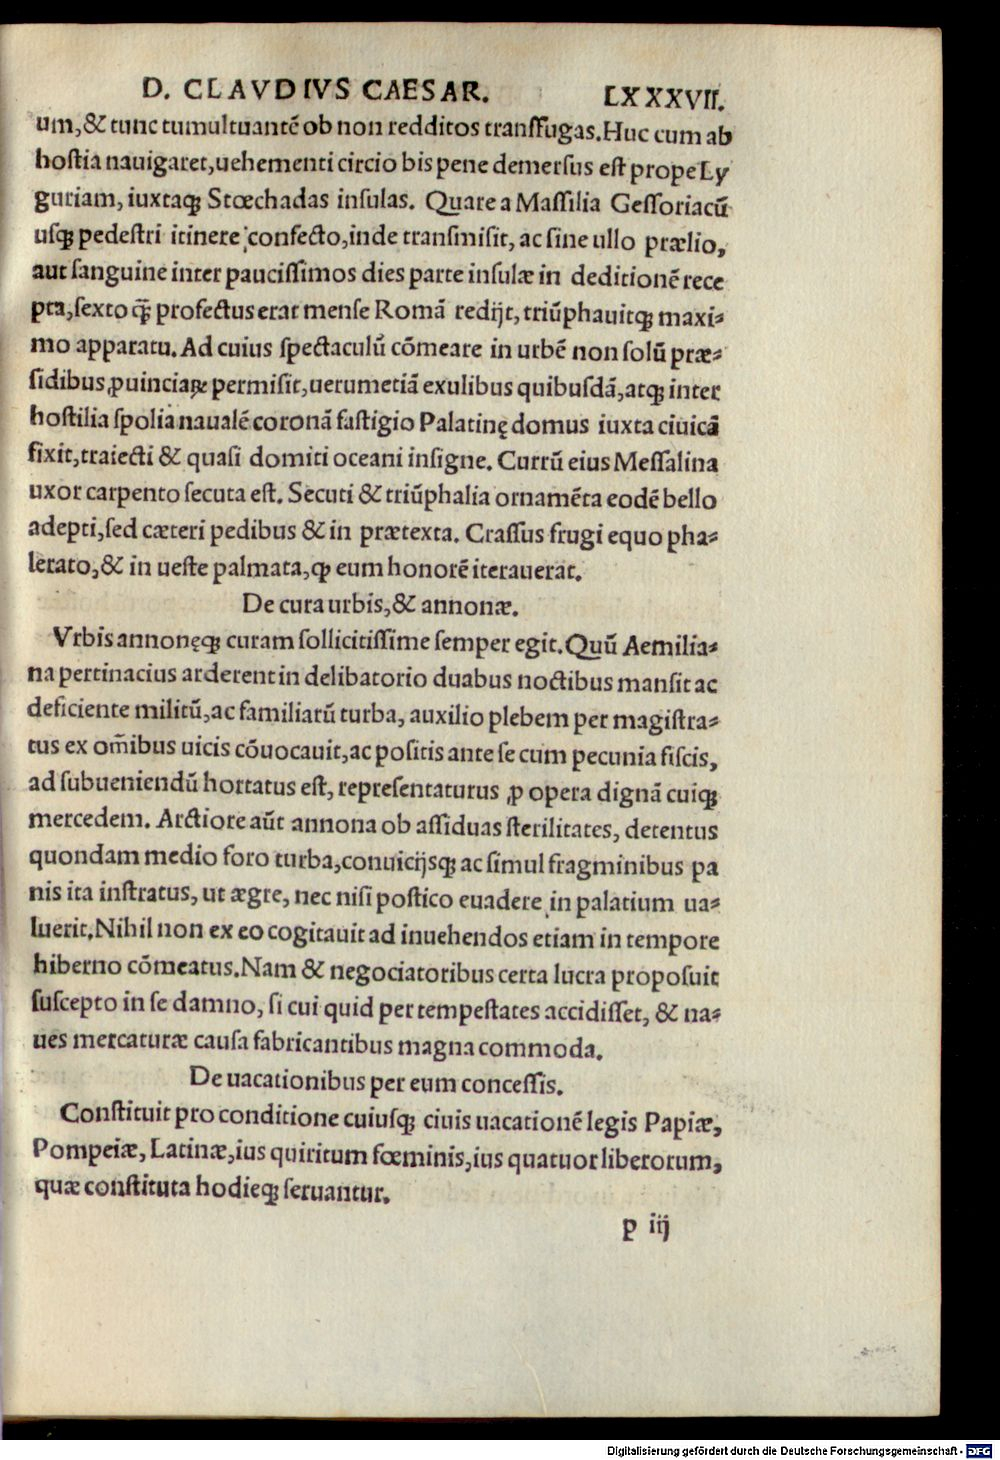 D. CLAVDIVS CAESAR. LXXXVII.
um,& tunc tumultuantē ob non redditos transfugas.Huc cum ab
hostia nauigaret,uehementi circio bis pene demersus est prope Ly
guriam, iuxtaq; Stœchadas insulas. Quare a Massilia Gessoriacū
usq; pedestri itinere confecto,inde transmisit, ac sine ullo prælio,
aut sanguine inter paucissimos dies parte insulæ in deditionē rece
pta,sexto q̄; profectus erat mense Romā redijt, triūphauitq; maxi⸗
mo apparatu.Ad cuius spectaculū cōmeare in urbē non solū præ⸗
sidibus ꝓuinciaꝝ permisit,uerumetiā exulibus quibusdā,atq; inter
hostilia spolia naualē coronā fastigio Palatinę domus iuxta ciuicā
fixit,traiecti & quasi domiti oceani insigne. Currū eius Messalina
uxor carpento secuta est. Secuti & triūphalia ornamēta eodē bello
adepti,sed cæteri pedibus & in prætexta. Crassus frugi equo pha⸗
lerato,& in ueste palmata,ꝙ eum honorē iterauerat.
De cura urbis,& annonæ.
Vrbis annonęq; curam sollicitissime semper egit.Quū Aemilia⸗
na pertinacius arderent in delibatorio duabus noctibus mansit ac
deficiente militū,ac familiarū turba, auxilio plebem per magistra⸗
tus ex om̄ibus uicis cōuocauit,ac positis ante se cum pecunia fiscis,
ad subueniendū hortatus est, repræsentaturus ꝓ opera dignā cuiq;
mercedem. Arctiore aūt annona ob assiduas sterilitates, detentus
quondam medio foro turba,conuicijsq; ac simul fragminibus pa
nis ita instratus, ut ægre, nec nisi postico euadere in palatium ua⸗
luerit.Nihil non ex eo cogitauit ad inuehendos etiam in tempore
hiberno cōmeatus.Nam & negociatoribus certa lucra proposuit
suscepto in se damno, si cui quid per tempestates accidisset, & na⸗
ues mercaturæ causa fabricantibus magna commoda.
De uacationibus per eum concessis.
Constituit pro conditione cuiusq; ciuis uacationē legis Papiæ,
Pompeiæ, Latinæ,ius quiritum fœminis,ius quatuor liberorum,
quæ constituta hodieq; seruantur.
p iij
Digitalisierung gefördert durch die Deutsche Forschungsgemeinschaft - DFG